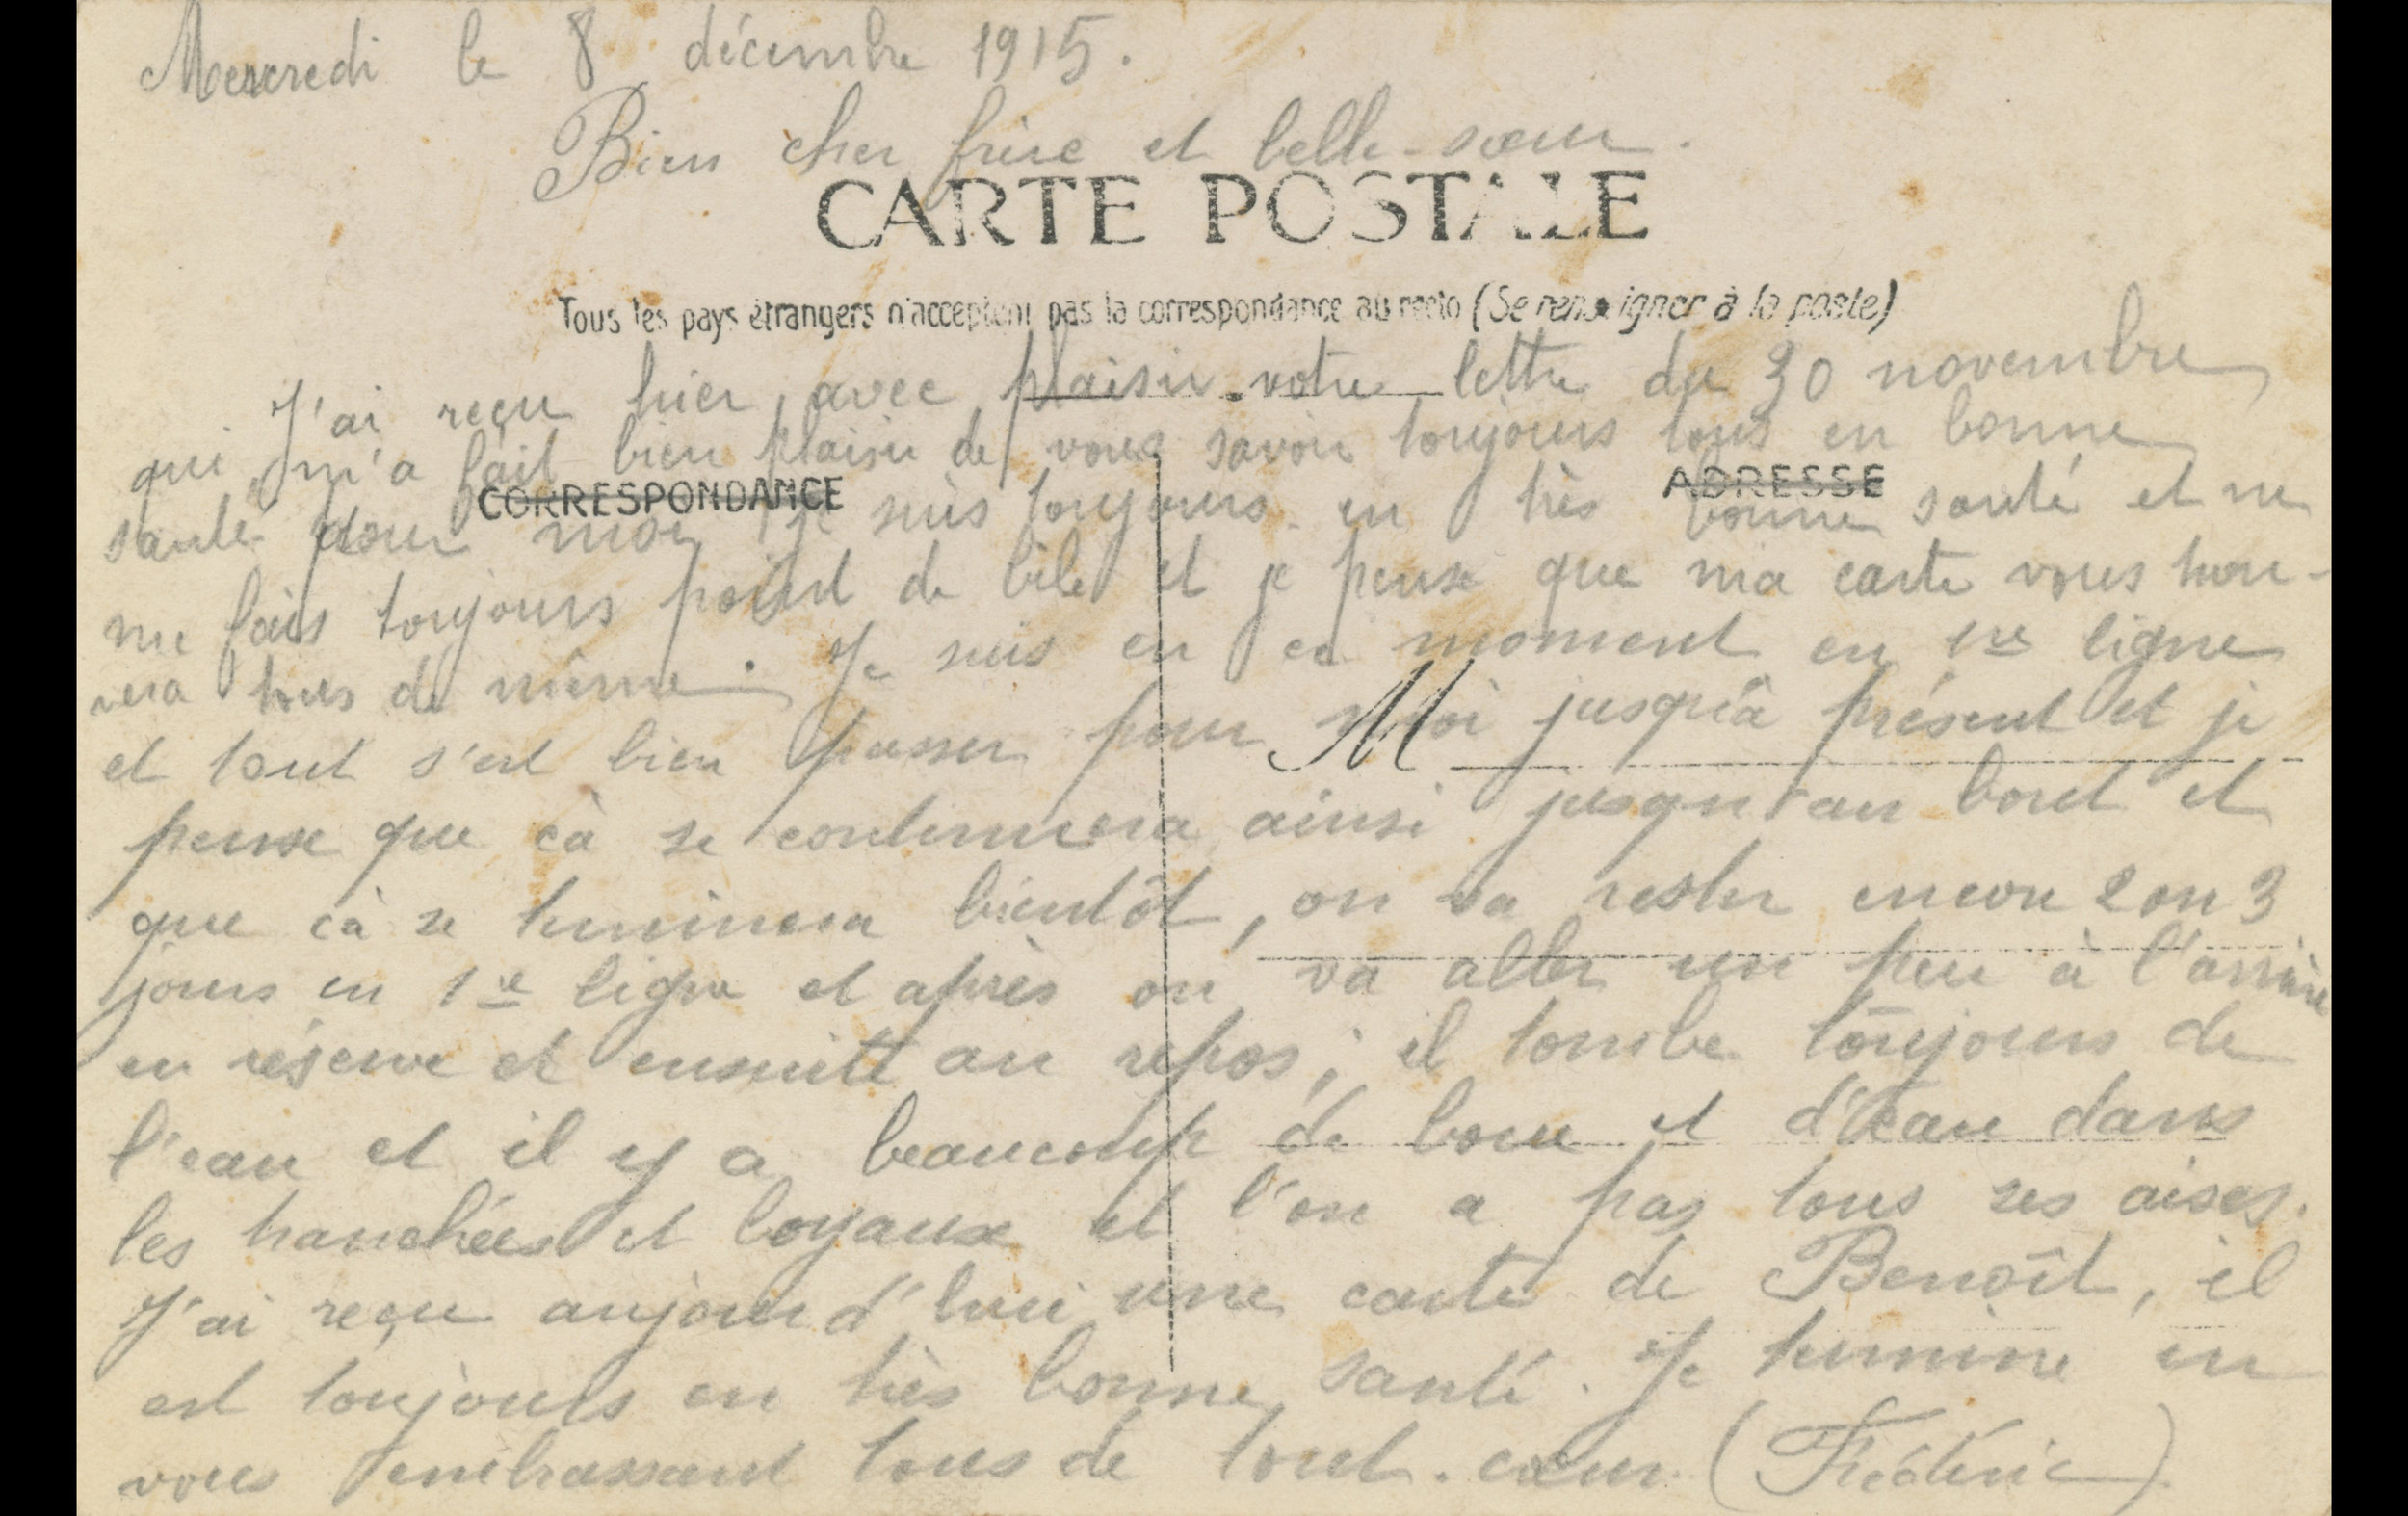 Mercredi le 8 décembre 1915.
Bien cher frère et belle-sœur.
CARTE POSTALE
Tous les pays étrangers n'acceptent pas la correspondance au recto (Se renseigner à la poste)
J'ai reçu hier avec plaisir votre lettre du 30 novembre
qui m'a fait bien plaisir de vous savoir toujours tous en bonne
CORRESPONDANCE
ADRESSE
santé pour moi je suis toujours en très bonne santé et ne
me fais toujours point de bile et je pense que ma carte vous trou-
vera tous de même. Je suis en ce moment en 1re ligne
M
et tout s'est bien passer pour moi jusqu'à présent et je
pense que çà se continuera ainsi jusqu'au bout et
que çà se terminera bientôt, on va rester encore 2 ou 3
jours en 1re ligne et après on va aller un peu à l'arrière
en réserve et ensuite au repos ; il tombe toujours de
l'eau et il y a beaucoup de boue et d'eau dans
les tranchées et boyaux et l'on a pas tous ses aises.
J'ai reçu aujourd'hui une carte de Benoît, il
est toujours en très bonne santé. Je termine en
vous embrassant tous de tout cœur (Frédéric)